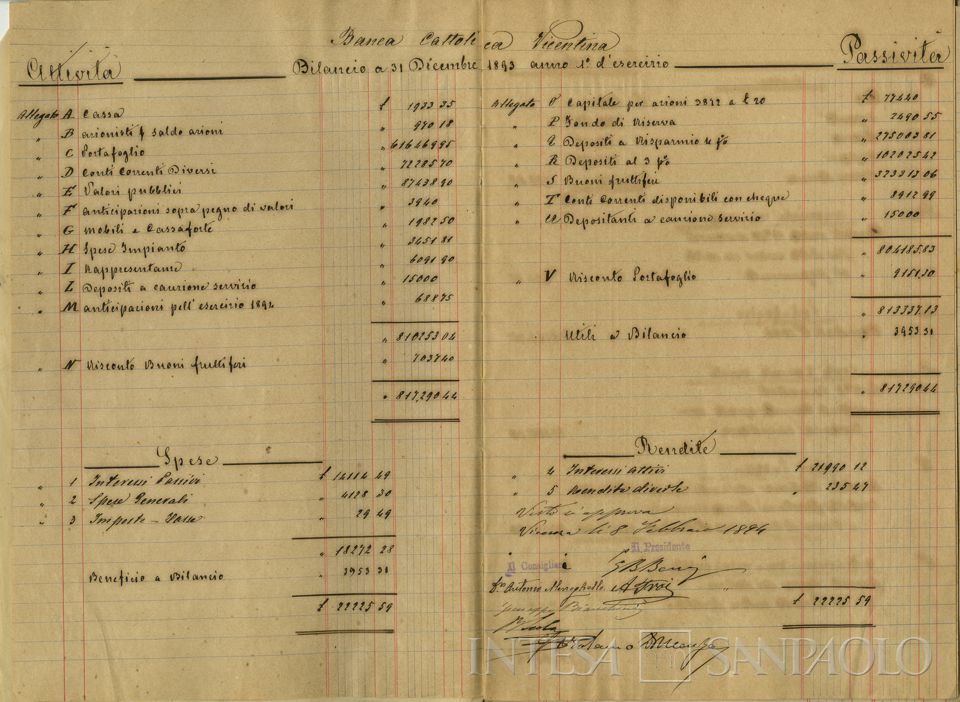 Banca Cattolica Vicentina
Attività Bilancio a 31 Dicembre 1893 anno 1º d'esercizio Passività
Allegato A Cassa £ 1933 35
" B azionisti p saldo azioni " 970 18
" C Portafoglio " 616469 95
" D Conti Correnti Diversi " 72285 70
" E Valori pubblici " 87438 90
" F anticipazioni sopra pegno di valori " 3940
" G Mobili e Cassaforte " 1982 50
" H Spese Impianto " 3451 81
" I Rappresentanze " 6091 90
" L Depositi a cauzione servizio " 15000
" M anticipazioni pell'esercizio 1894 " 688 75
" 810253 04
" N Risconto Buoni fruttiferi " 7037 40
" 817290 44
Allegato O Capitale per azioni 3872 a £ 20 £ 77440
" P Fondo di Riserva " 2490 55
" Q Depositi a Risparmio 4 % " 275003 81
" R Depositi al 3 % " 102025 42
" S Buoni fruttiferi " 323313 06
" T Conti Correnti disponibili con cheque " 8912 99
" U Depositanti a cauzione servizio " 15000
" 804185.83
" V Risconto Portafoglio " 9151.30
" 813337.13
Utili a Bilancio " 3953 31
" 817290.44
Spese
" 1 Interessi Passivi £ 14114 49
" 2 Spese Generali " 4128 30
" 3 Imposte - Tasse " 29 49
" 18272 28
Beneficio a Bilancio " 3953 31
£ 22225 59
Rendite
" 4 Interessi attivi £ 21990 12
" 5 Rendite diverse " 235.47
Visto si approva
Vicenza li 8 Febbraio 1894
Il Presidente
Il Consigliere
Antonio
Giuseppe
£ 22225 59
INTESA SANPAOLO